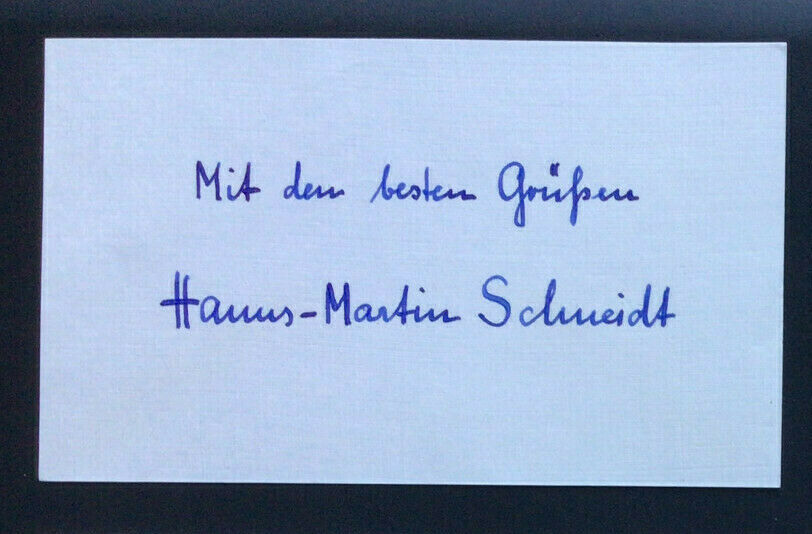 Mit den besten Grüßen
Hanns-Martin Schneidt